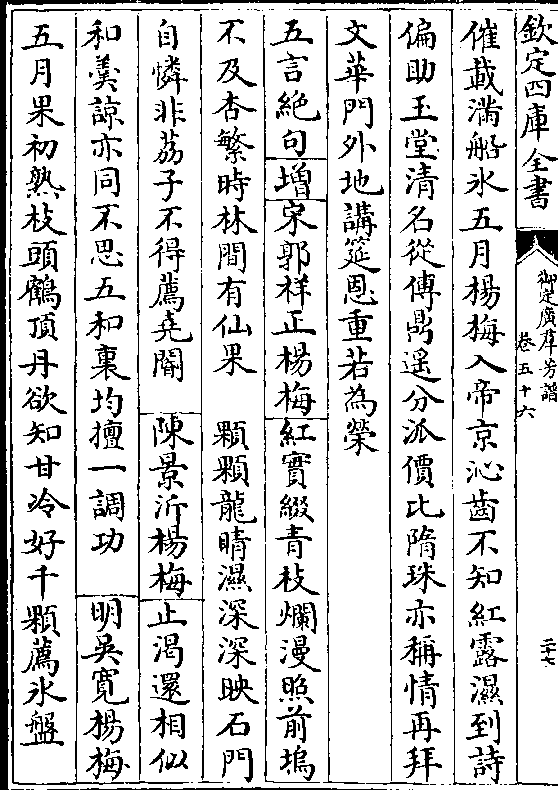 欽定四庫全書
御定廣群芳譜
卷五十六
二十七
催載滿船氷五月楊梅入帝京沁齒不知紅露濕到詩
偏助玉堂清名從傅鼎遥分派價比隋珠亦稱情再拜
文華門外地講筵恩重若為榮
五言絶句增宋郭祥正楊梅紅實綴青枝爛漫照前塢
不及杏繁時林間有仙果　顆顆龍睛濕深深映石門
自憐非荔子不得薦堯閽　陳景沂楊梅止渴還相似
和羮諒亦同不思五和裏均擅一調功　明吳寛楊梅
五月果初熟枝頭鶴頂丹欲知甘冷好千顆薦氷盤